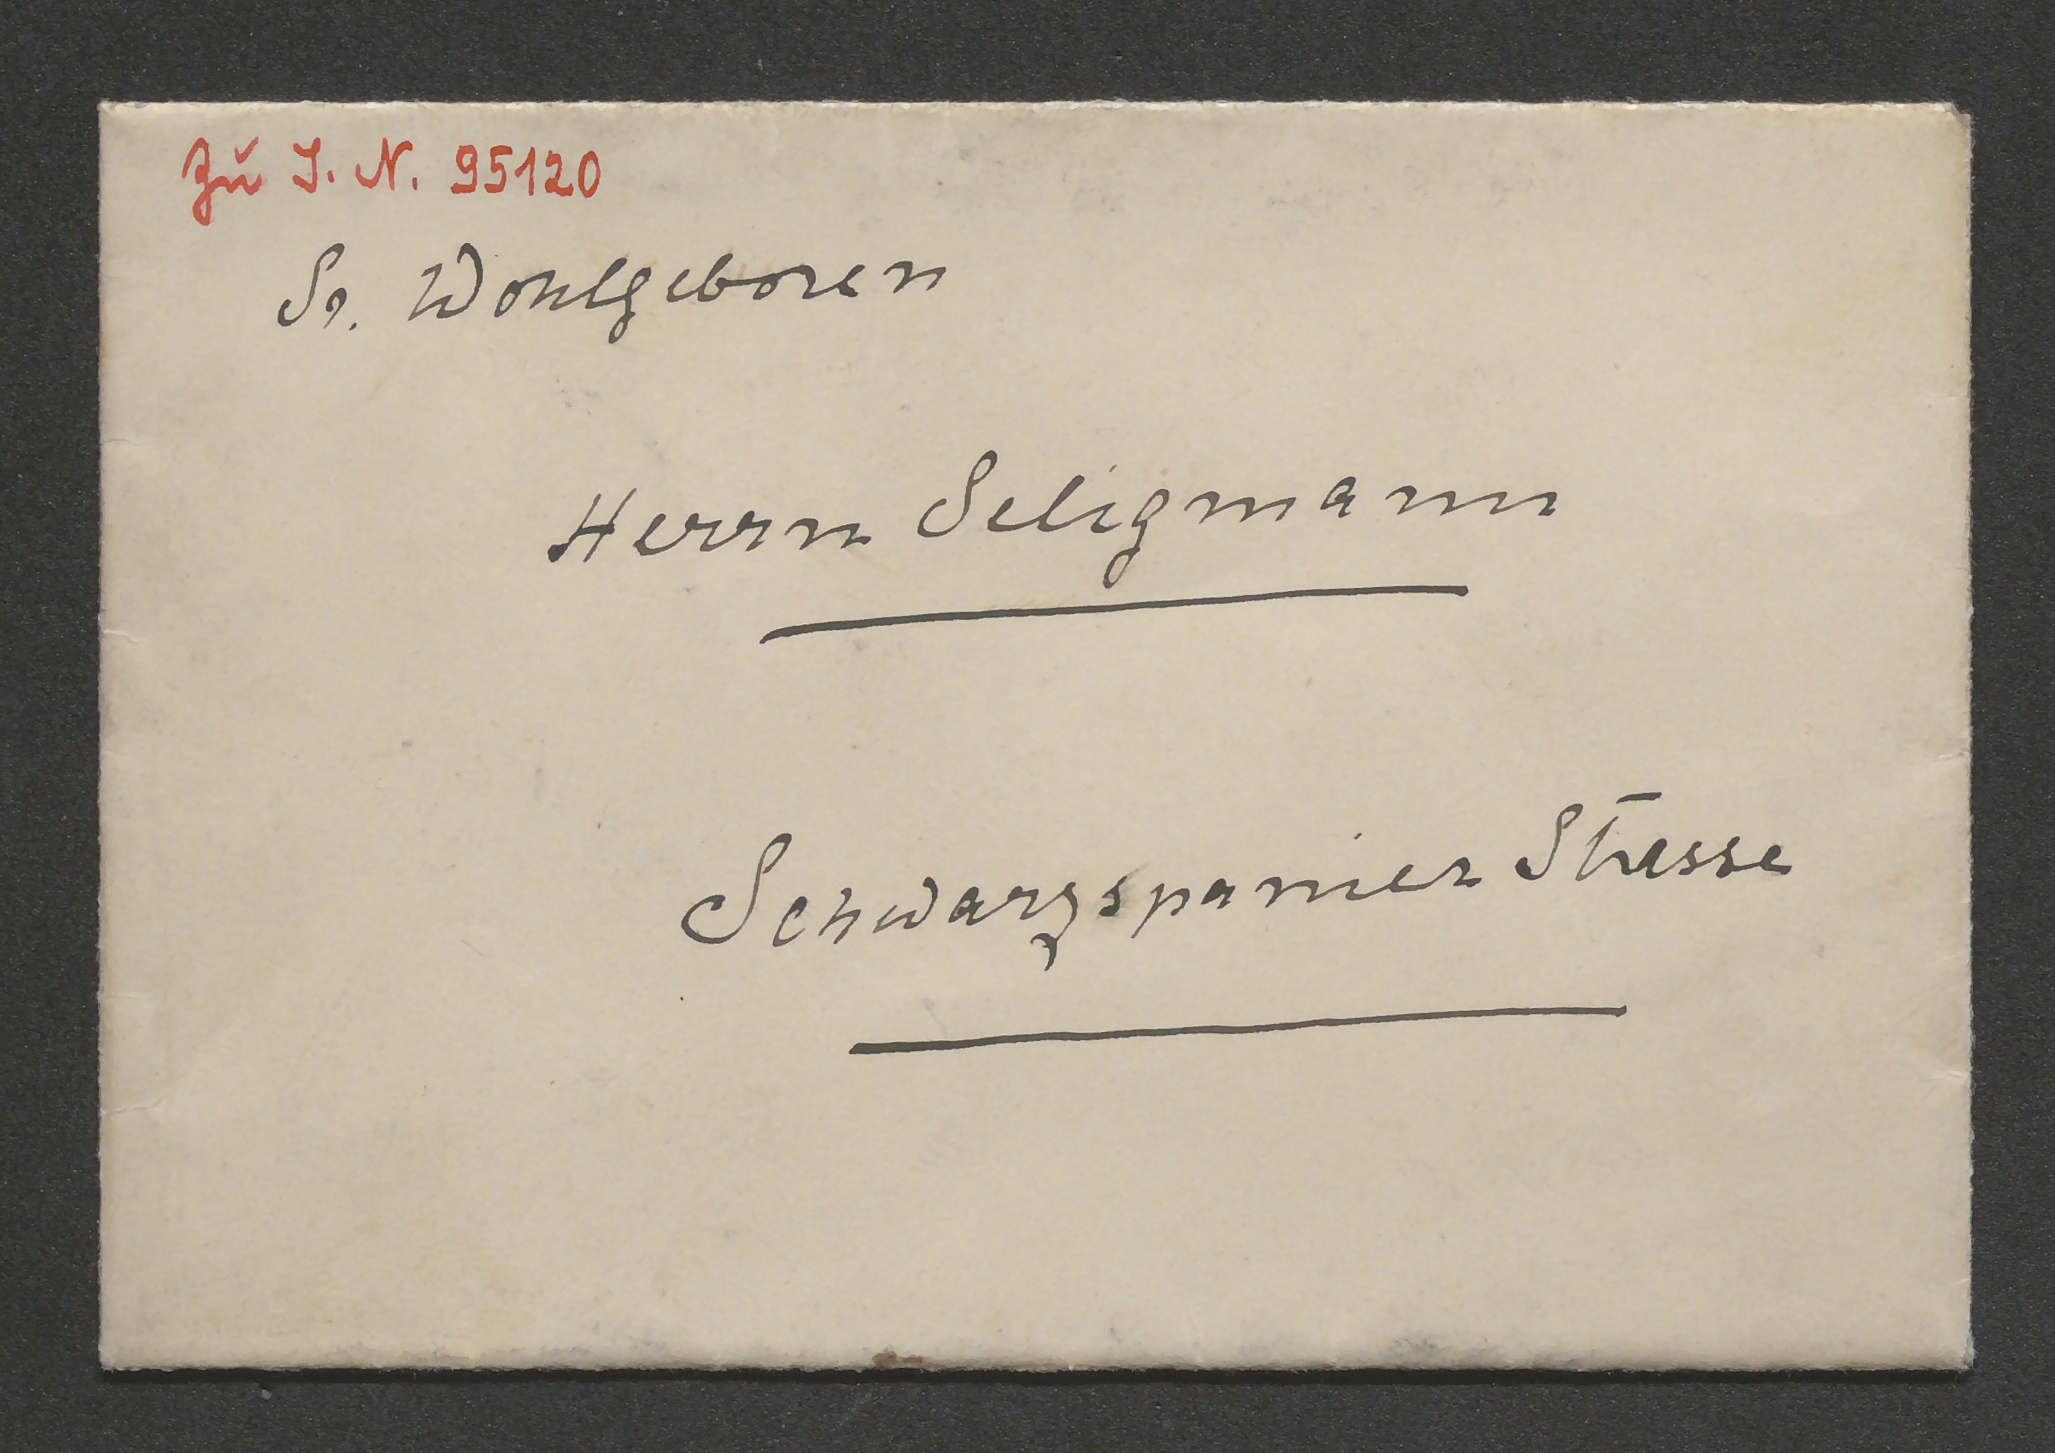 Zu I. N. 95120
Sr. Wohlgeboren
Herrn Seligmann
Schwarzspanier Strasse